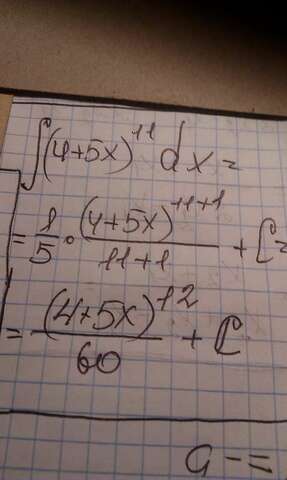 ∫(4+5x)^11 dx =
= 1/5 · (4+5x)^(11+1)/(11+1) + C =
= (4+5x)^12/60 + C
a -=